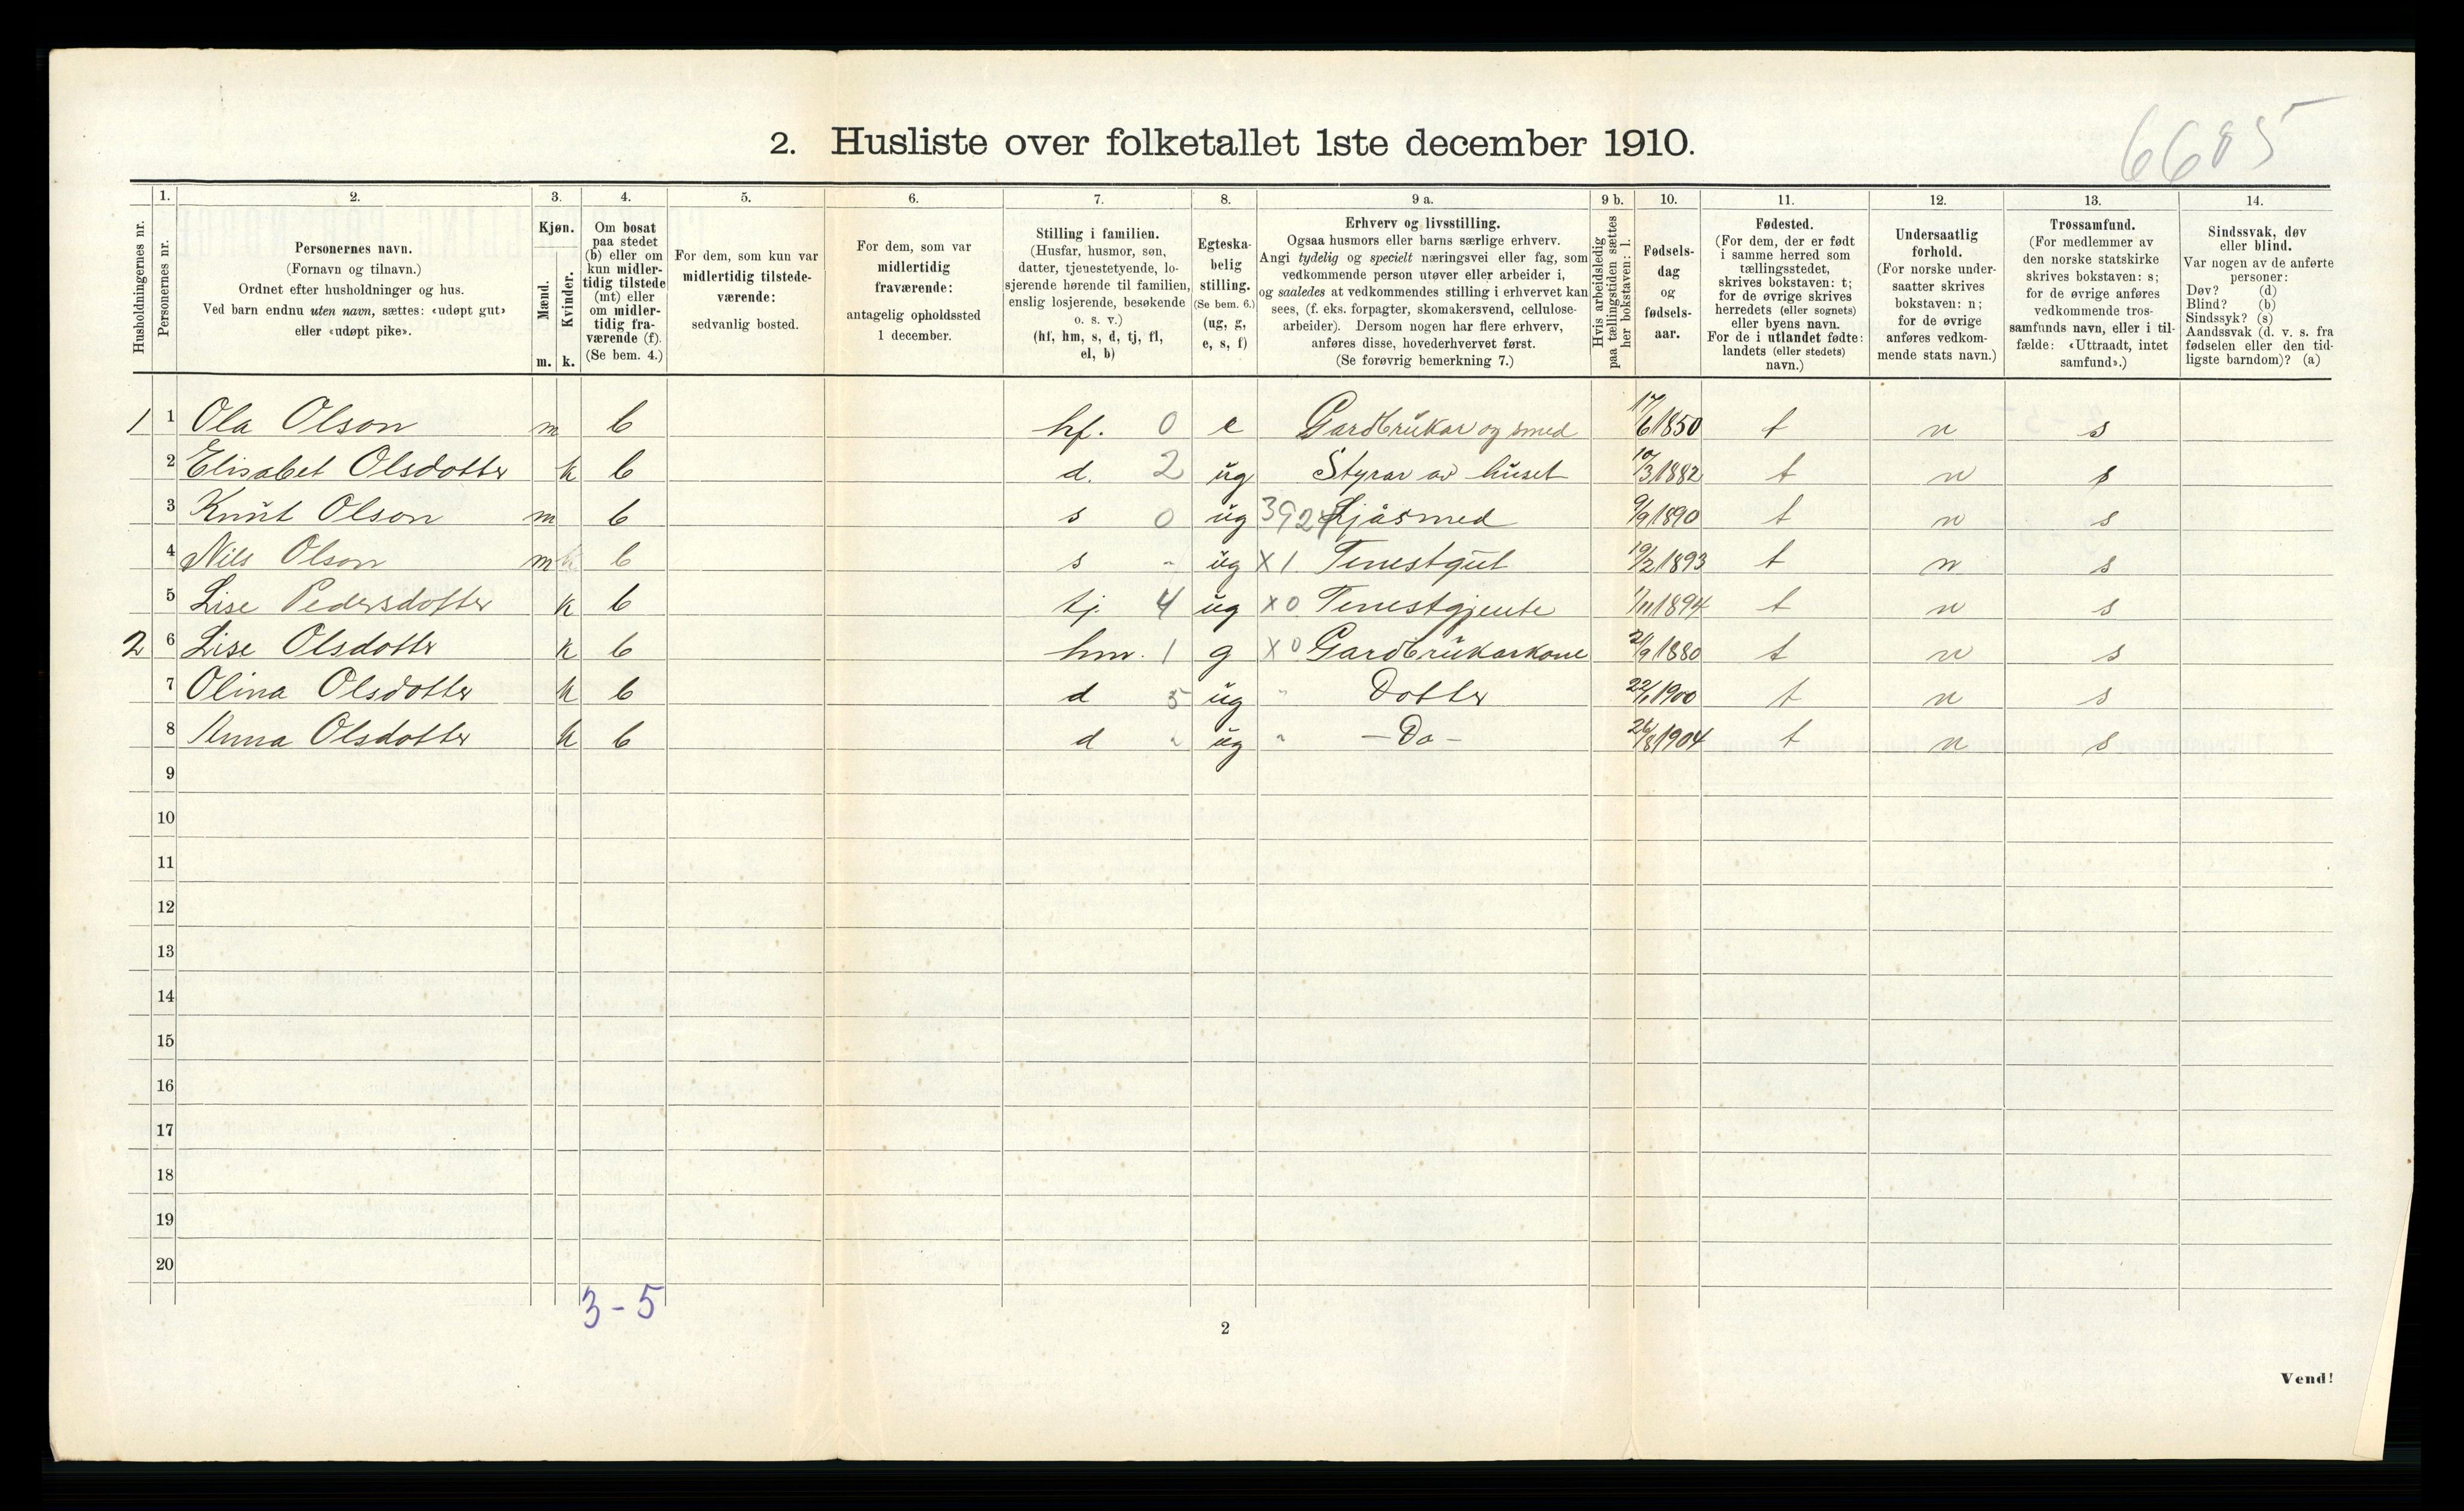 6685
2. Husliste over folketallet 1ste december 1910.
Husholdningernes nr.
1.
Personernes nr.
2.
Personernes navn.
(Fornavn og tilnavn.)
Ordnet efter husholdninger og hus.
Ved barn endnu uten navn, sættes: «udøpt gut»
eller «udøpt pike».
3.
Kjøn.
Mænd.
Kvinder.
m. k.
4.
Om bosat
paa stedet
(b) eller om
kun midler-
tidig tilstede
(mt) eller
om midler-
tidig fra-
værende (f).
(Se bem. 4.)
5.
For dem, som kun var
midlertidig tilstede-
værende:
sedvanlig bosted.
6.
For dem, som var
midlertidig
fraværende:
antagelig opholdssted
1 december.
7.
Stilling i familien.
(Husfar, husmor, søn,
datter, tjenestetyende, lo-
sjerende hørende til familien,
enslig losjerende, besøkende
o. s. v.)
(hf, hm, s, d, tj, fl,
el, b)
8.
Egteska-
belig
stilling.
(Se bem. 6.)
(ug, g,
e, s, f)
9 a.
Erhverv og livsstilling.
Ogsaa husmors eller barns særlige erhverv.
Angi tydelig og specielt næringsvei eller fag, som
vedkommende person utøver eller arbeider i,
og saaledes at vedkommendes stilling i erhvervet kan
sees, (f. eks. forpagter, skomakersvend, cellulose-
arbeider). Dersom nogen har flere erhverv,
anføres disse, hovederhvervet først.
(Se forøvrig bemerkning 7.)
9 b.
Hvis arbeidsledig
paa tællingstiden sættes
her bokstaven: l.
10.
Fødsels-
dag
og
fødsels-
aar.
11.
Fødested.
(For dem, der er født
i samme herred som
tællingsstedet,
skrives bokstaven: t;
for de øvrige skrives
herredets (eller sognets)
eller byens navn.
For de i utlandet fødte:
landets (eller stedets)
navn.)
12.
Undersaatlig
forhold.
(For norske under-
saatter skrives
bokstaven: n;
for de øvrige
anføres vedkom-
mende stats navn.)
13.
Trossamfund.
(For medlemmer av
den norske statskirke
skrives bokstaven: s;
for de øvrige anføres
vedkommende tros-
samfunds navn, eller i til-
fælde: «Uttraadt, intet
samfund».)
14.
Sindssvak, døv
eller blind.
Var nogen av de anførte
personer:
Døv? (d)
Blind? (b)
Sindssyk? (s)
Aandssvak (d. v. s. fra
fødselen eller den tid-
ligste barndom)? (a)
1 1 Ola Olson m b hf. 0 e Gardbrukar og smed 17/6 1850 t n s
2 Elisabet Olsdotter k b d. 2 ug Styrar av huset 10/3 1882 t n s
3 Knut Olson m b s 0 ug 3924 Ljåsmed 9/9 1890 t n s
4 Nils Olson m b s " ug X 1. Tenestgut 19/2 1893 t n s
5 Lise Pedersdotter k b tj. 4 ug X0 Tenestgjente 1/11 1894 t n s
2 6 Lise Olsdotter k b hm. 1 g X0 Gardbrukarkone 21/9 1880 t n s
7 Olina Olsdotter k b d 5 ug " Dotter 22/1 1900 t n s
8 Anna Olsdotter k b d " ug " - Do - 26/8 1904 t n s
9
10
11
12
13
14
15
16
17
18
19
20
3-5
2
Vend!